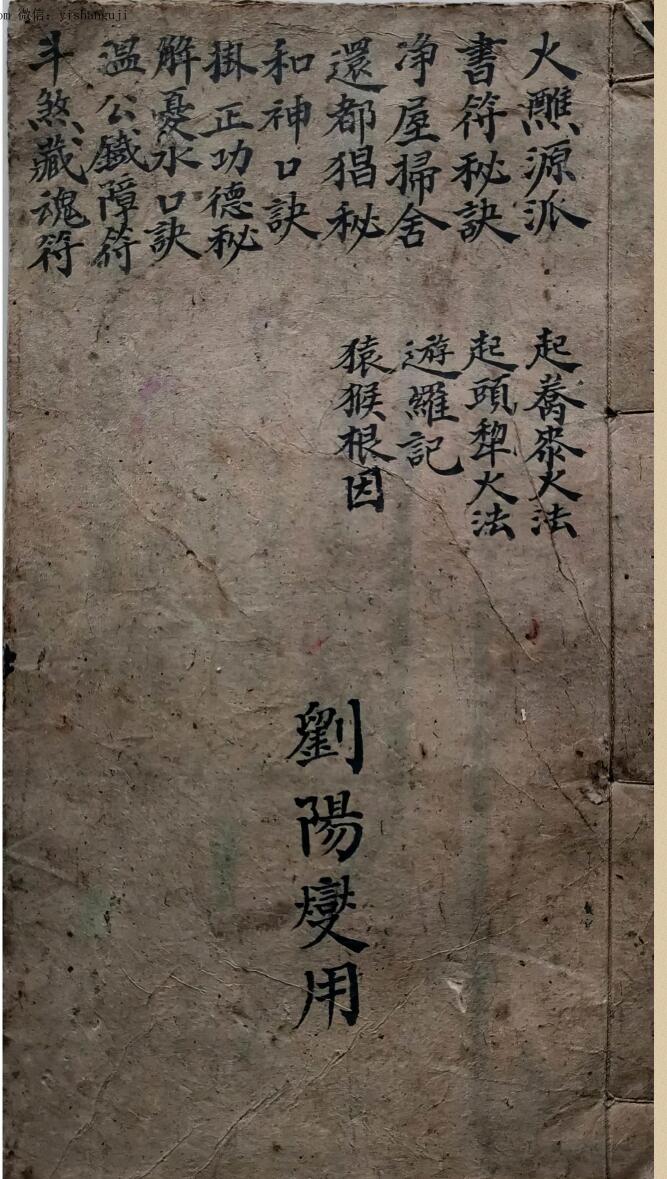 om 微信：yishanguji
火醮源派
書符秘訣
净屋掃舍
還都猖秘
和神口訣
掛正功德秘
解憂水口訣
温公鐵障符
斗煞藏魂符
起蕎麥火法
起頭犂火法
遊羅記
猿猴根因
劉陽燮用